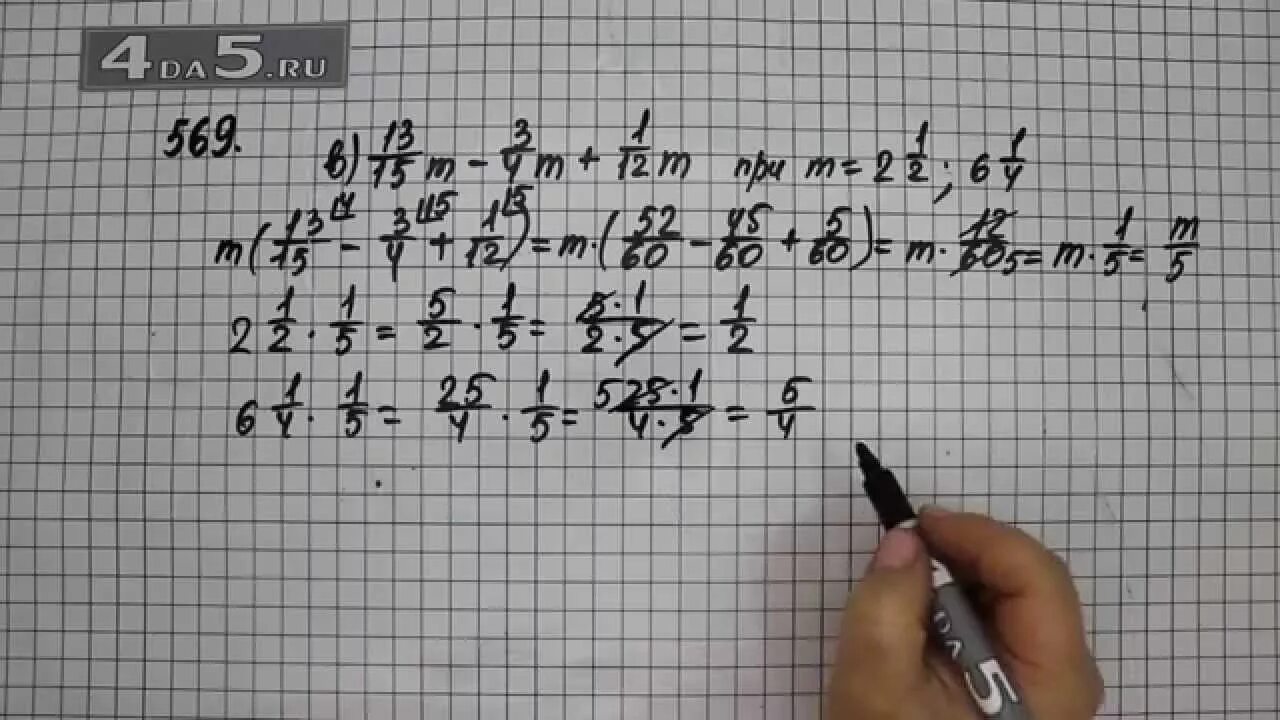 4DA5.RU
569.
в) 13/15 m - 3/4 m + 1/12 m при m = 2 1/2; 6 1/4
m(13/15 |4 - 3/4 |15 + 1/12 |5) = m·(52/60 - 45/60 + 5/60) = m·12/60 5 = m·1/5 = m/5
2 1/2 · 1/5 = 5/2 · 1/5 = 5·1/2·5 = 1/2
6 1/4 · 1/5 = 25/4 · 1/5 = 5 25·1/4·5 = 5/4
DA5